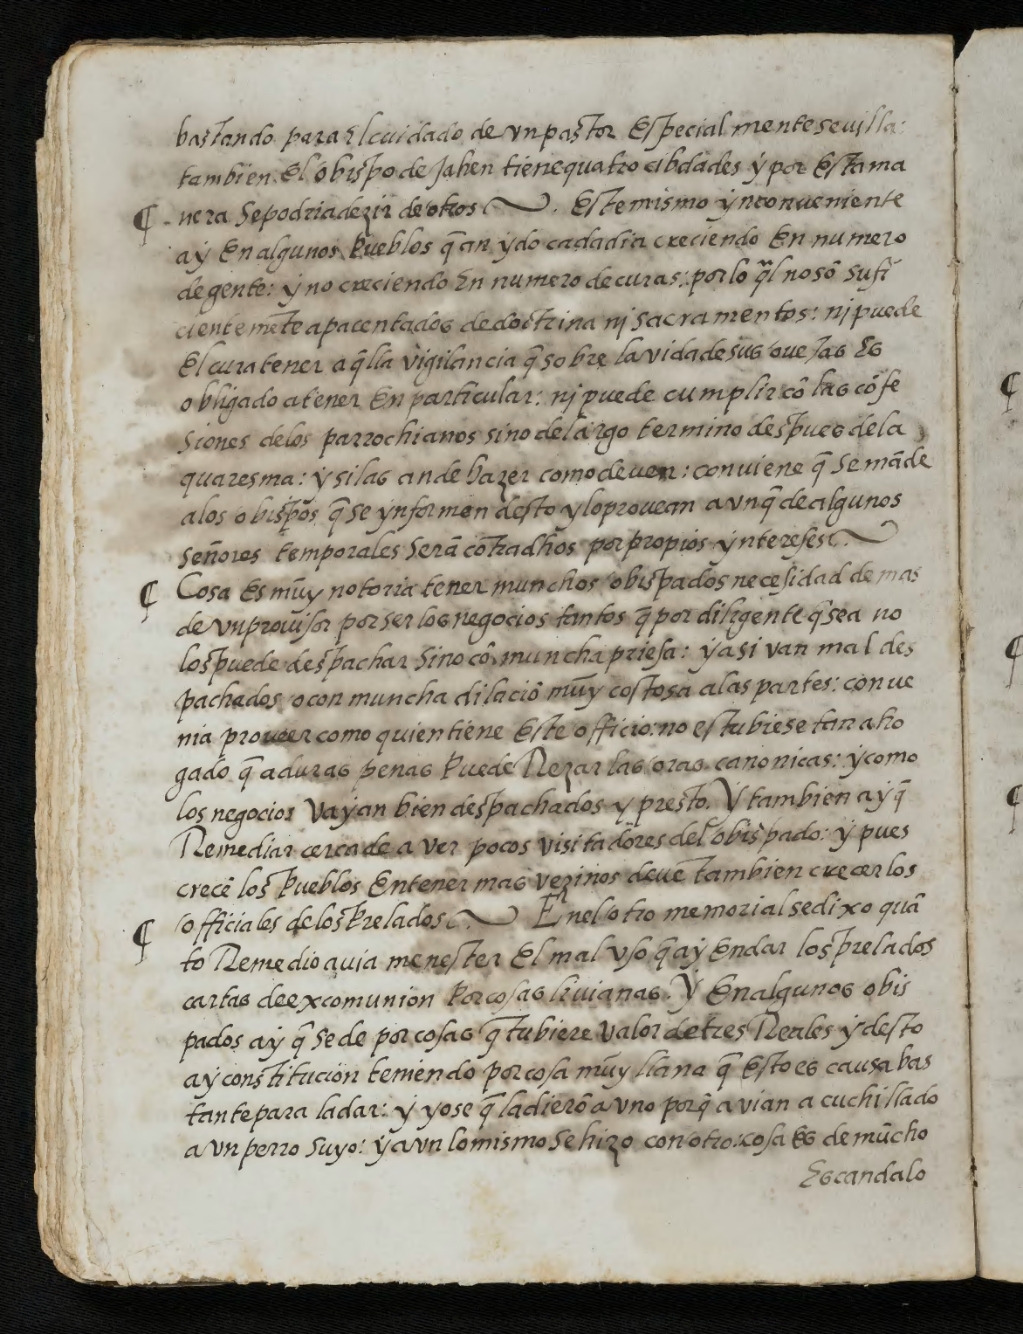 bastando para El cuidado de vn pastor Especial mente seuilla:
tambien El obispo de Jahen tiene quatro cibdades ÿ por Esta ma
¶ nera se podria dezir de otros. Este mismo ÿnconueniente
aÿ En algunos Pueblos q̃ an ÿdo cada dia creciendo En numero
de gente: ÿ no creciendo En numero de curas: por lo q̃l no sõ sufi
ciente mẽte apacentados de doctrina nj sacramentos: nj puede
El cura tener aq̃lla vigilancia q̃ sobre la vida de sus ouejas Es
obligado a tener En particular: nj puede cumplir cõ las cõfe
siones delos parrochianos sino de largo termino despues de la
quaresma: ÿ si las an de hazer como deuen: conuiene q̃ se mãde
alos obispos q̃ se ynformen desto y lo prouean avnq̃ de algunos
señores temporales serã cõtradhos por propios ÿntereses.
¶ Cosa Es mũy notoria tener munchos obispados necesidad de mas
de vn prouisor por ser los negocios tantos q̃ por diligente q̃ sea no
los puede despachar sino cõ muncha priesa: ÿ asi van mal des
pachados o con muncha dilaciõ mũy costosa a las partes: conue
nia proueer como quien tiene Este officio: no estubiese tan aho
gado q̃ a duras penas Puede Rezar las oras canonicas: ÿ como
los negocios vaÿan bien despachados y presto. Y tambien a ÿ q̃
Remediar cerca de a ver pocos visitadores del obispado: ÿ pues
crecẽ los Pueblos En tener mas vezinos deuẽ tambien crecer los
¶ officiales de los Prelados. En el otro memorial se dixo quã
to Remedio auia menester El mal vso q̃ aÿ En dar los prelados
cartas de excomunion Por cosas liuianas. Y En algunos obis
pados aÿ q̃ se de por cosas q̃ tubiere valor de tres Reales ÿ desto
aÿ constitucion teniendo por cosa mũy llana q̃ Esto es causa bas
tante para la dar: ÿ yo se q̃ la dierõ a vno porq̃ a vian a cuchillado
a vn perro suyo: ÿ a vn lo mismo se hizo con otro: cosa Es de mũcho
Escandalo